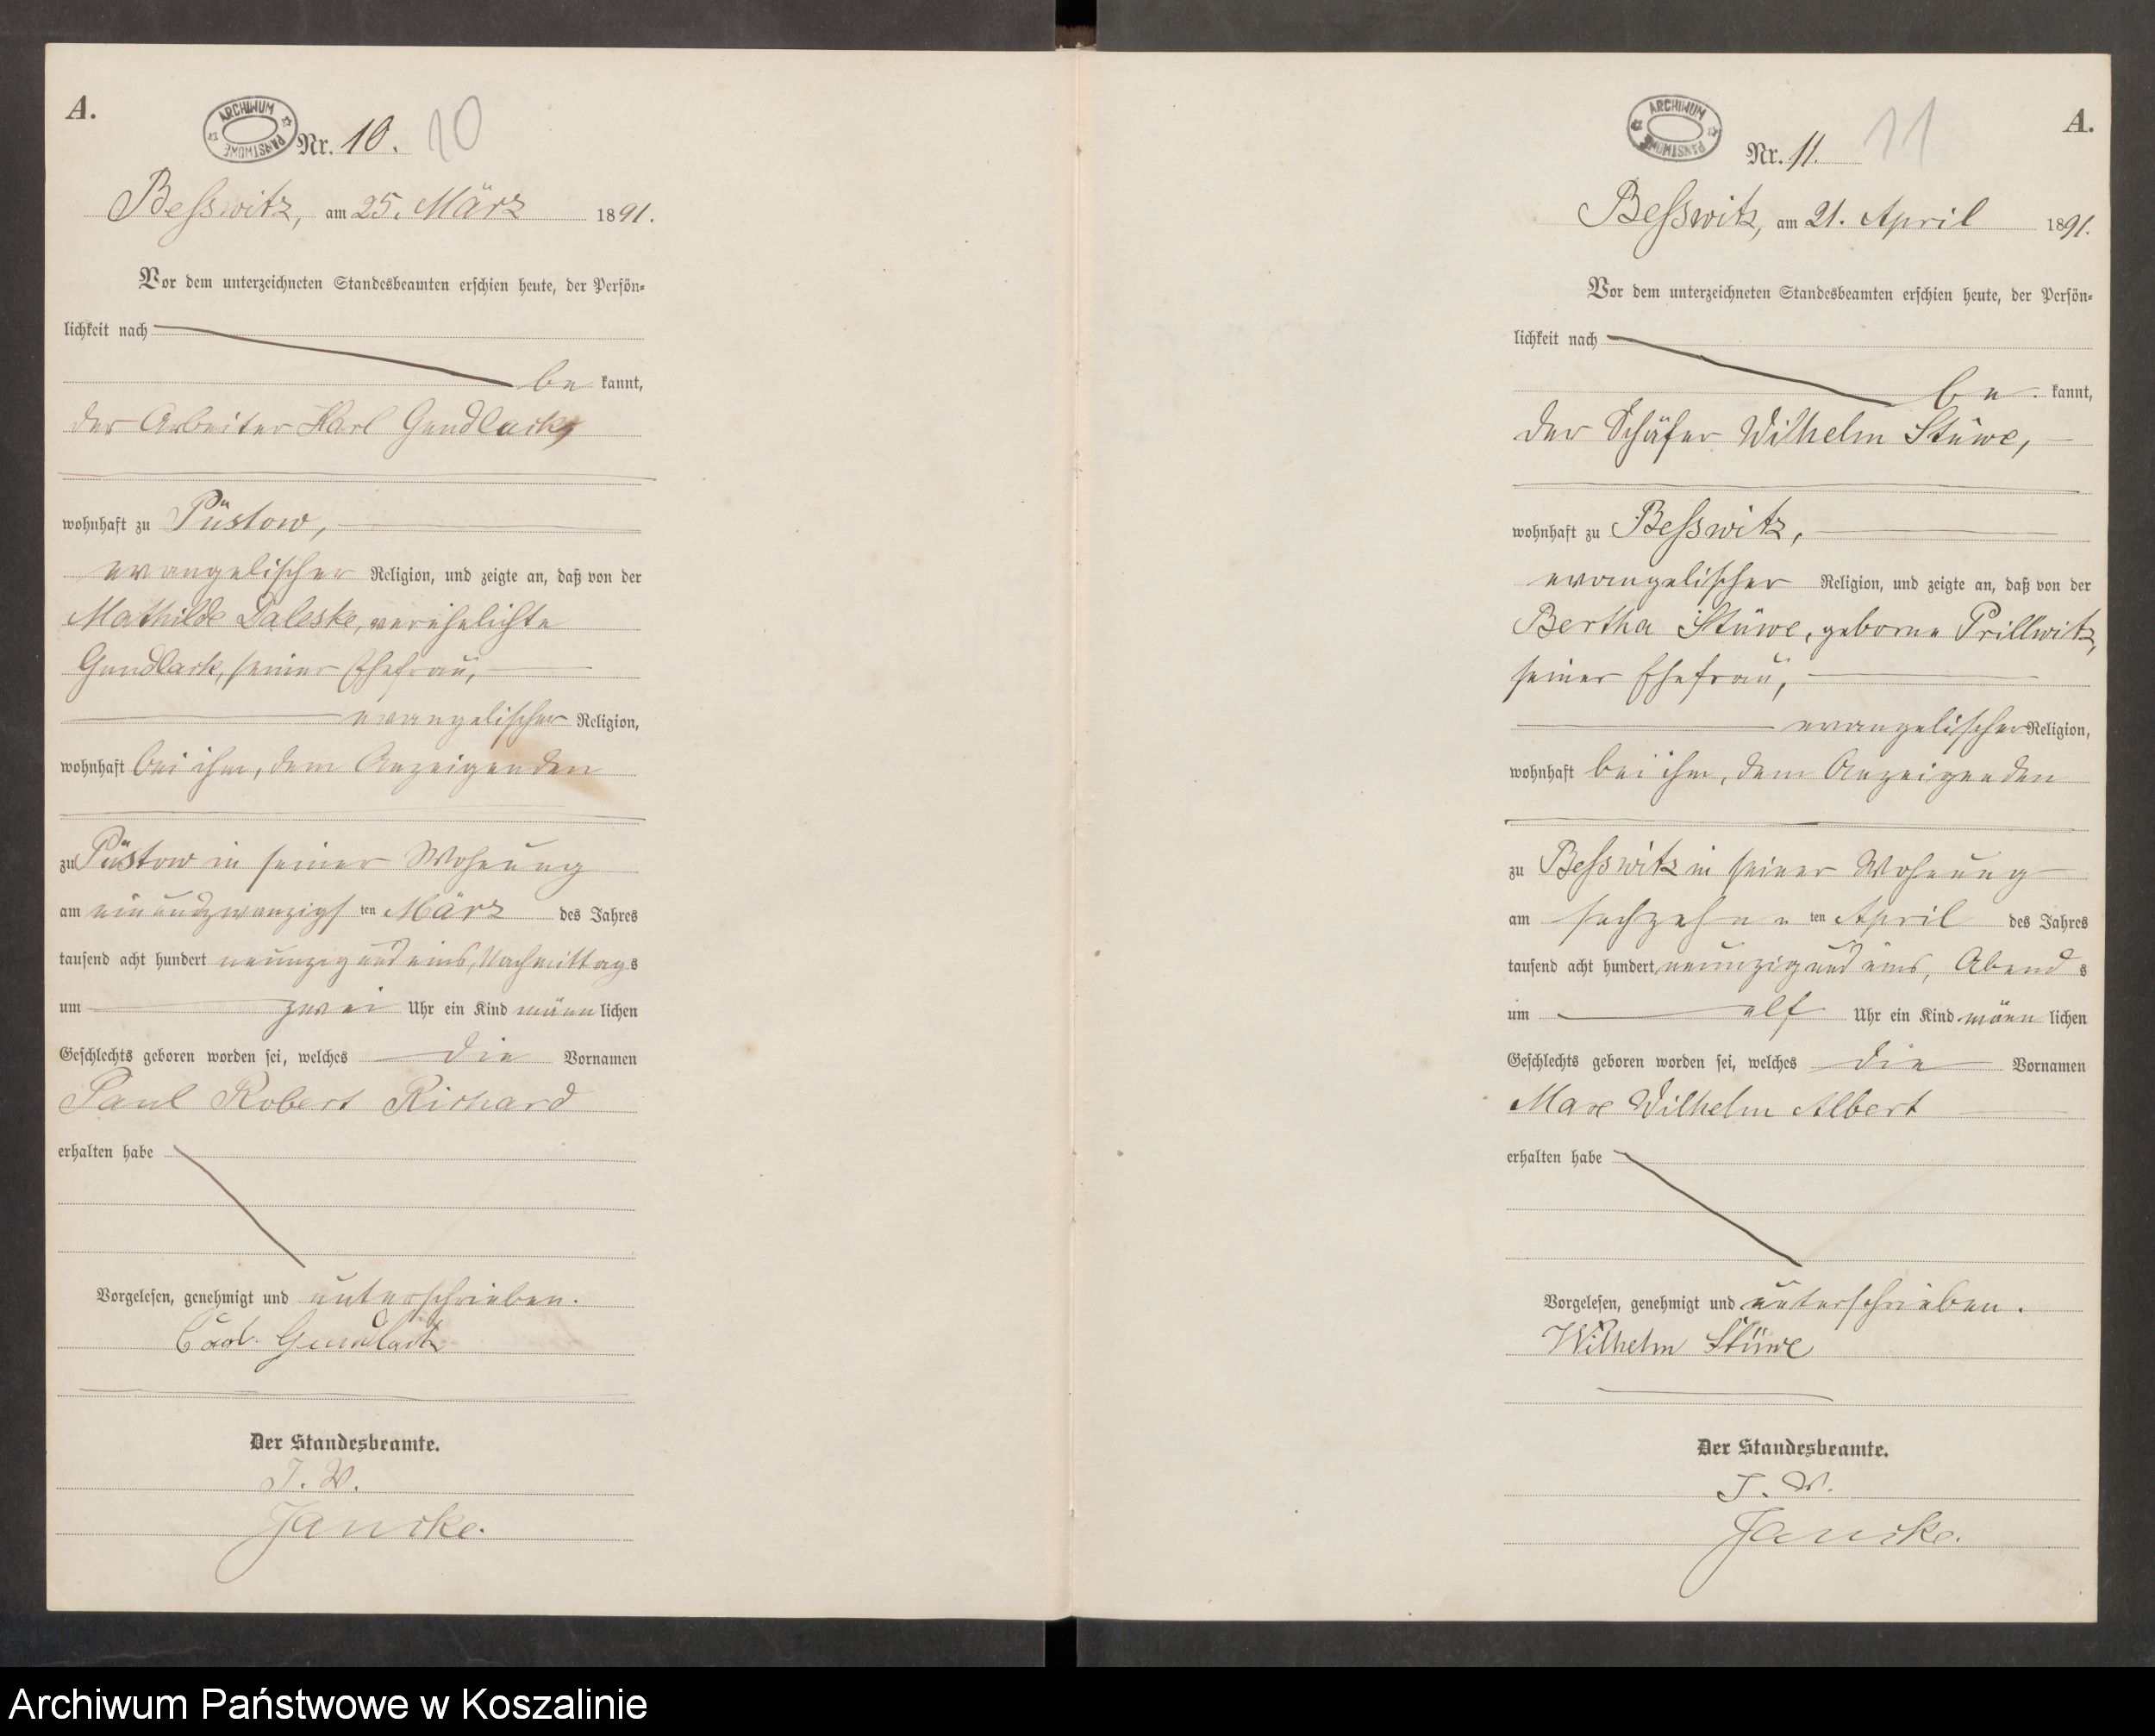 A.
ARCHIWUM PAŃSTWOWE
Nr. 10. 10
Beßwitz, am 25. März 1891.
Vor dem unterzeichneten Standesbeamten erschien heute, der Persön-
lichkeit nach
be kannt,
der Arbeiter Karl Gundlack,
wohnhaft zu Püstow,
evangelischer Religion, und zeigte an, daß von der
Mathilde Daleske, verehelichte
Gundlack, seiner Ehefrau,
evangelischer Religion,
wohnhaft bei ihm, dem Anzeigenden
zu Püstow in seiner Wohnung
am einundzwanzigsten März des Jahres
tausend acht hundert neunzig und eins, Nachmittags
um zwei Uhr ein Kind männlichen
Geschlechts geboren worden sei, welches die Vornamen
Paul Robert Richard
erhalten habe
Vorgelesen, genehmigt und unterschrieben.
Carl Gundlack
Der Standesbeamte.
J. V.
Jancke.
A.
ARCHIWUM PAŃSTWOWE
Nr. 11. 11
Beßwitz, am 21. April 1891.
Vor dem unterzeichneten Standesbeamten erschien heute, der Persön-
lichkeit nach
be kannt,
der Schäfer Wilhelm Stüwe,
wohnhaft zu Beßwitz,
evangelischer Religion, und zeigte an, daß von der
Bertha Stüwe, geborne Prillwitz,
seiner Ehefrau,
evangelischer Religion,
wohnhaft bei ihm, dem Anzeigenden
zu Beßwitz in seiner Wohnung
am sechzehnten April des Jahres
tausend acht hundert neunzig und eins, Abends
um elf Uhr ein Kind männlichen
Geschlechts geboren worden sei, welches die Vornamen
Max Wilhelm Albert
erhalten habe
Vorgelesen, genehmigt und unterschrieben.
Wilhelm Stüwe
Der Standesbeamte.
J. V.
Jancke.
Archiwum Państwowe w Koszalinie